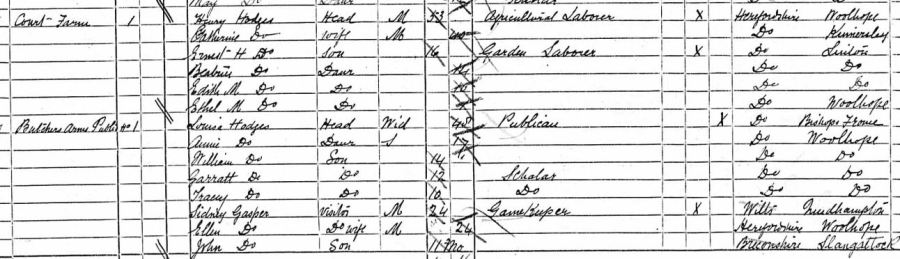 May Do Daur
Court Farm 1 Henry Hodges Head M 53 Agricultural Laborer X Herefordshire Woolhope
Catherine Do Wife M Do Kinnersley
Ernest H Do Son 16 Garden Laborer X Do Linton
Beatrice Do Daur Do Do
Edith M. Do Do 10 Do Do
Ethel M. Do Do Do Woolhope
Butchers Arms Public Ho 1 Louisa Hodges Head Wid 48 Publican X Do Bishops Frome
Annie Do Daur S 17 Do Woolhope
William Do Son 14 Do Do
Garratt Do Do 12 Scholar Do Do
Tracey Do Do 10 Do Do Do
Sidney Gasper Visitor M 24 GameKeeper X Wilts Quidhampton
Ellen Do Do wife M 24 Herefordshire Woolhope
John Do Son 11 Mo Breconshire Llangattock